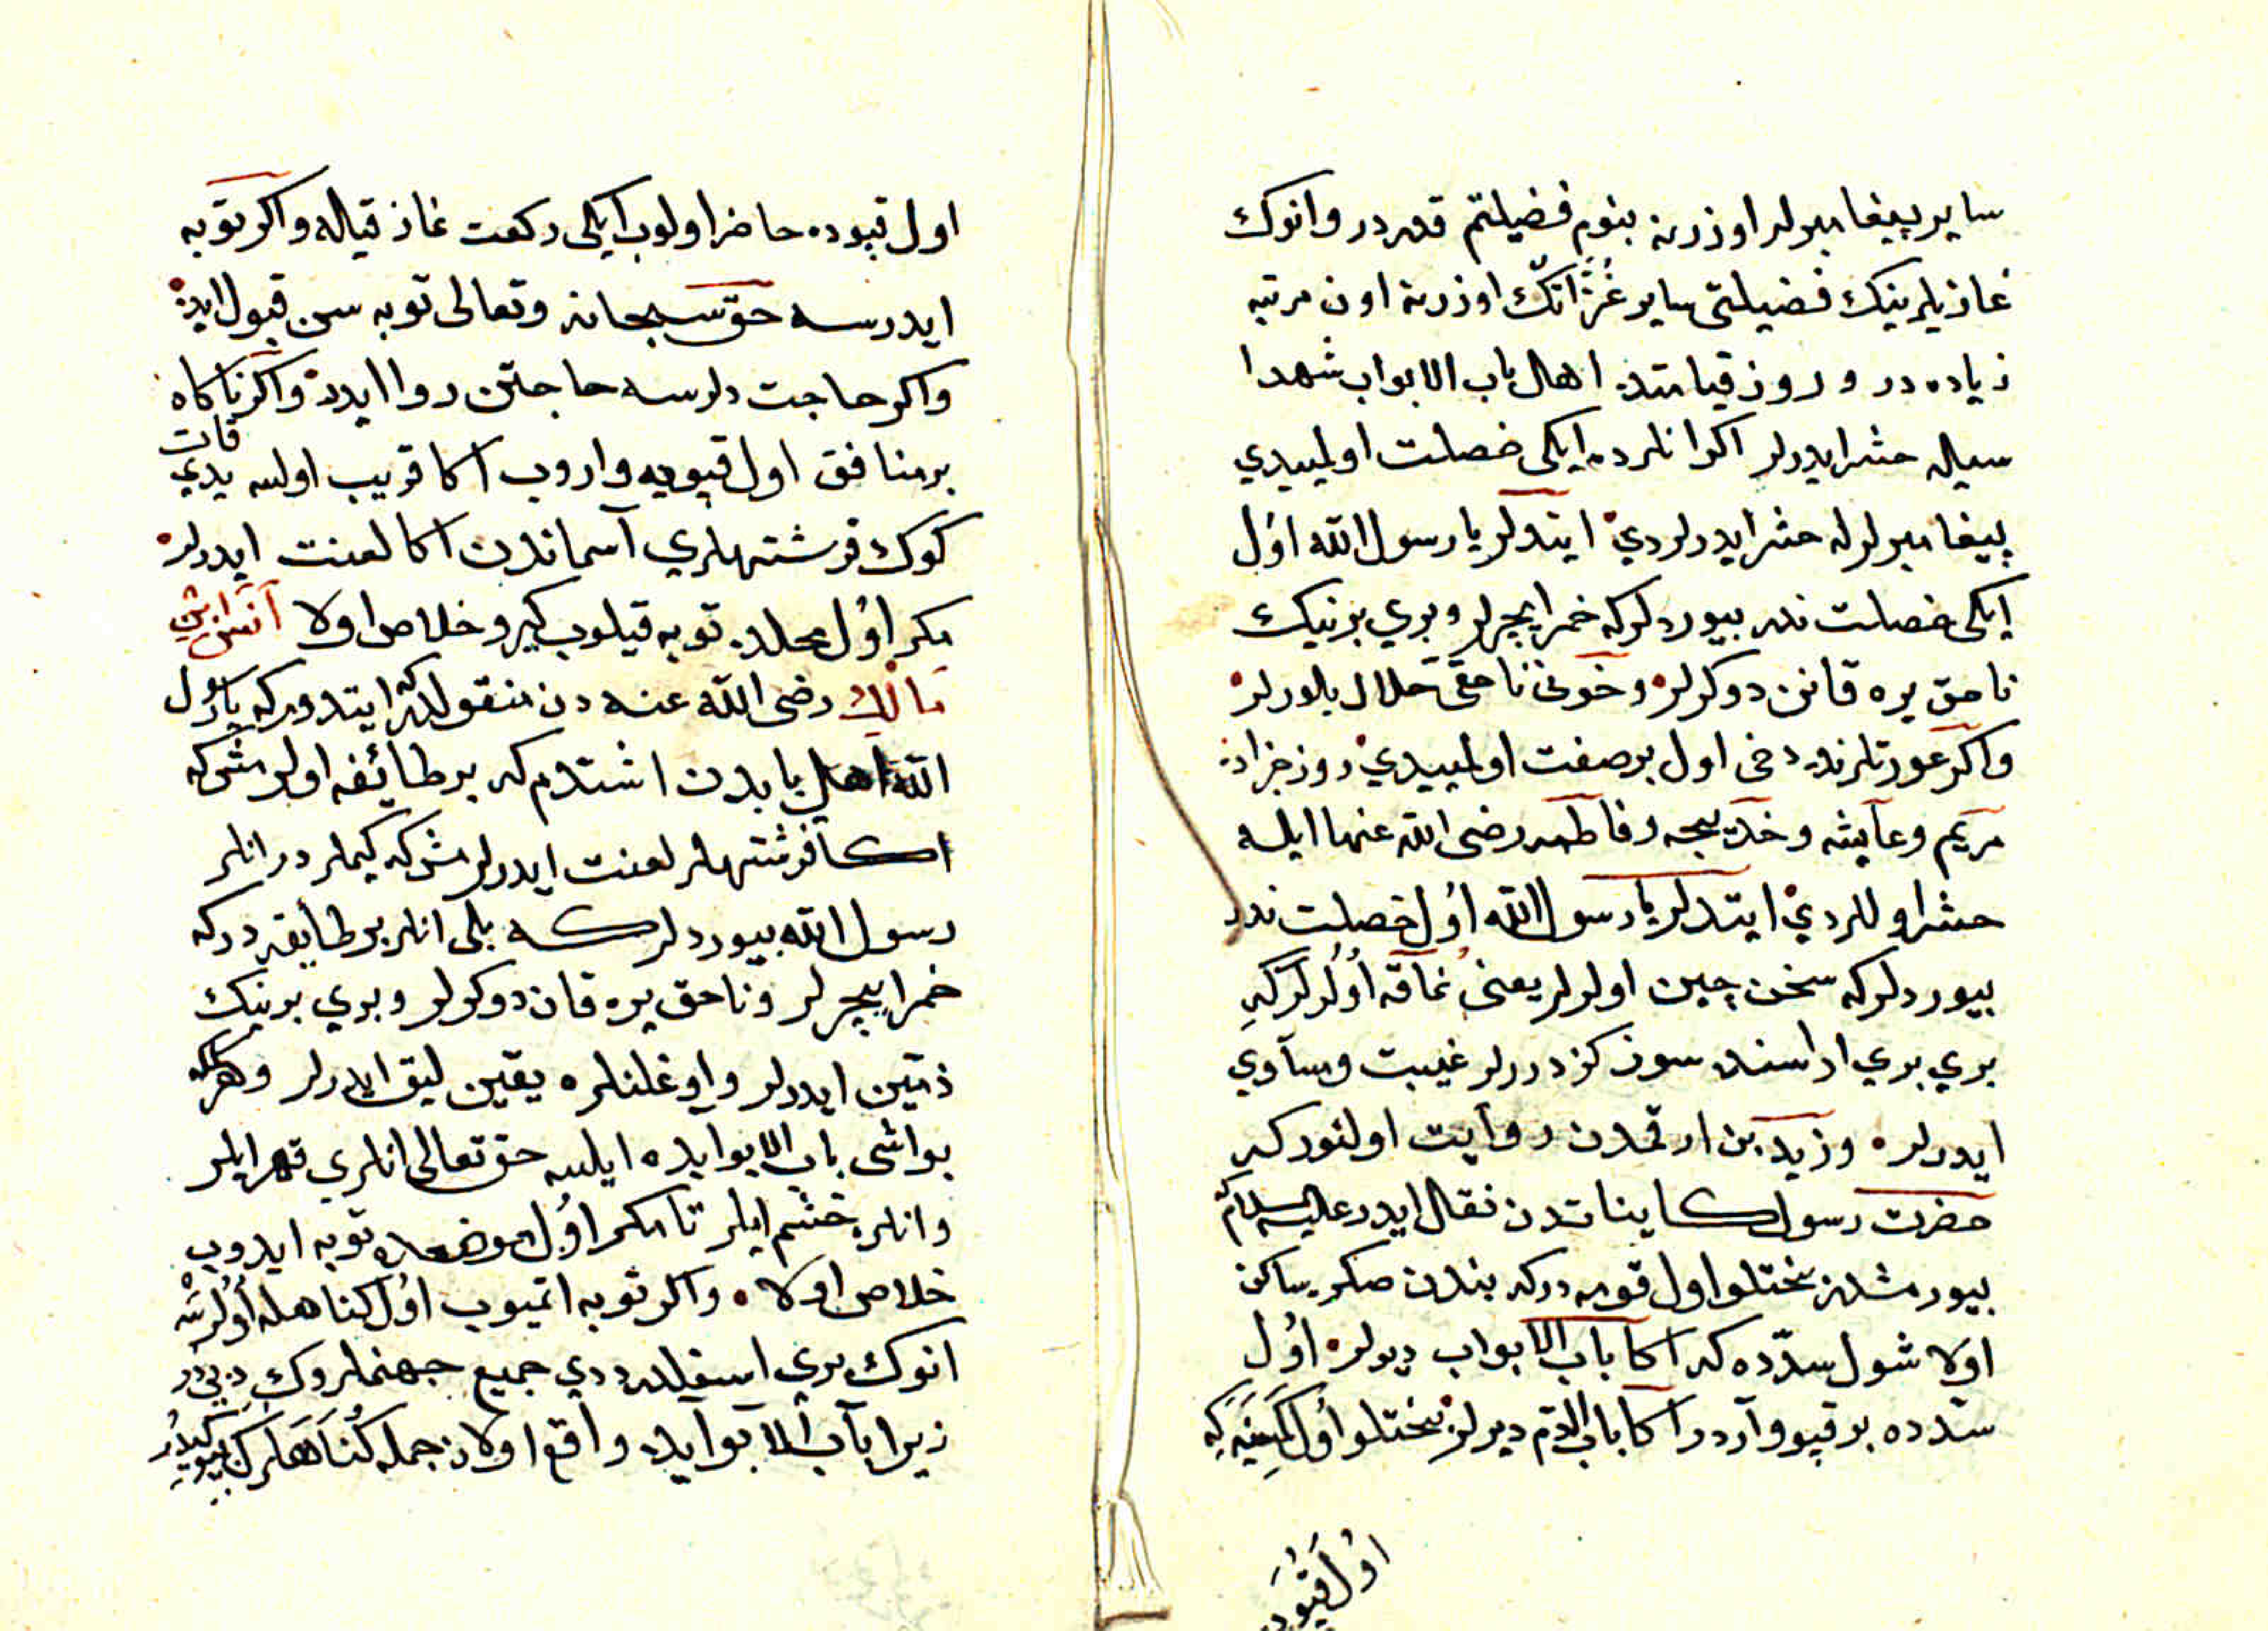 سایر پیغامبرلر اوزرنه بنوم فضیلتم قدردر وانوك
غازیلرینك فضیلتی سایر غُزّاتڭ اوزرنه اون مرتبه
زیاده در و روز قیامتده اهل باب الابواب شهدا
سیله حشر ایدرلر اکر انلرده ایکی خصلت اولمیدي
پیغامبرلرله حشر ایدرلردي ایتدلر یا رسول الله اوُل
ایکی خصلت ندر بیوردلرکه خمر ایچرلر وبري برنیك
ناحق یره قانن دوکرلر وخونی ناحقی حلال بلورلر
واکر عورتلرنده دخی اول برصفت اولمیدي روز جزاده
مریم وعایشه وخدیجه وفاطمه رضی الله عنها ایله
حشر اولردي ایتدلر یا رسول الله اوُل خصلت ندر
بیوردلرکه سخن چین اولرلر یعنی غماقه اوُلرلرکِه
بري بري اراسنده سوز کزدررلر غیبت ومساوي
ایدرلر وزید بن ارقمدن روایت اولنورکه
حضرت رسول کایناتدن نقل ایدر علیه السلام
بیورمشلر بختلو اول قومه درکه بندن صکره ساکن
اولا شول سدّده که اکا باب الابواب دیرلر اوُل
سدّده برقپو واردر اکا باب الدّم دیرلر بختلو اوُل کمسَنَه کِه
اوُل قَپُودَه
اول قپوده حاضر اولوب ایکی رکعت نماز قیله واکر توبه
ایدرسه حق سبحانه وتعالی توبه سن قبول ایدر
واکر حاجت دلرسه حاجتن روا ایدر واکر ناکاه
برمنافق اول قپویه واروب اکا قریب اولسه یدي قات
کوك فرشتهلري آسماندن اکا لعنت ایدرلر
مکر اوُل محلده توبه قیلوب کیرو خلاص اولا آنس ابن
مالك رضی الله عنه دن منقولدرکه ایتدوم که یا رسول
الله اهل بابدن اشتدم که برطائفه اولرمش که
اکا فرشتهلر لعنت ایدرلرمش که کیملر در انلر
رسول الله بیوردلر که بلی انلر برطایفه درکه
خمر ایچرلر وناحق یره قان دوکرلر وبري برنیك
ذمّین ایدرلر واوغلنلره یقین لیق ایدرلر وهرکه
بواشی باب الابوابده ایلسه حق تعالی انلري قهر ایلر
وانلره خشم ایلر تا مکر اوُل موضعده توبه ایدوب
خلاص اولا واکر توبه اتمیوب اوُل کناهله اوُلُرسَه
انوك یري اسفلده دي جمیع جهنملروك دبیدر
زیرا باب الابوابده واقع اولان جمله کُناهَلرك بیوکیدُر